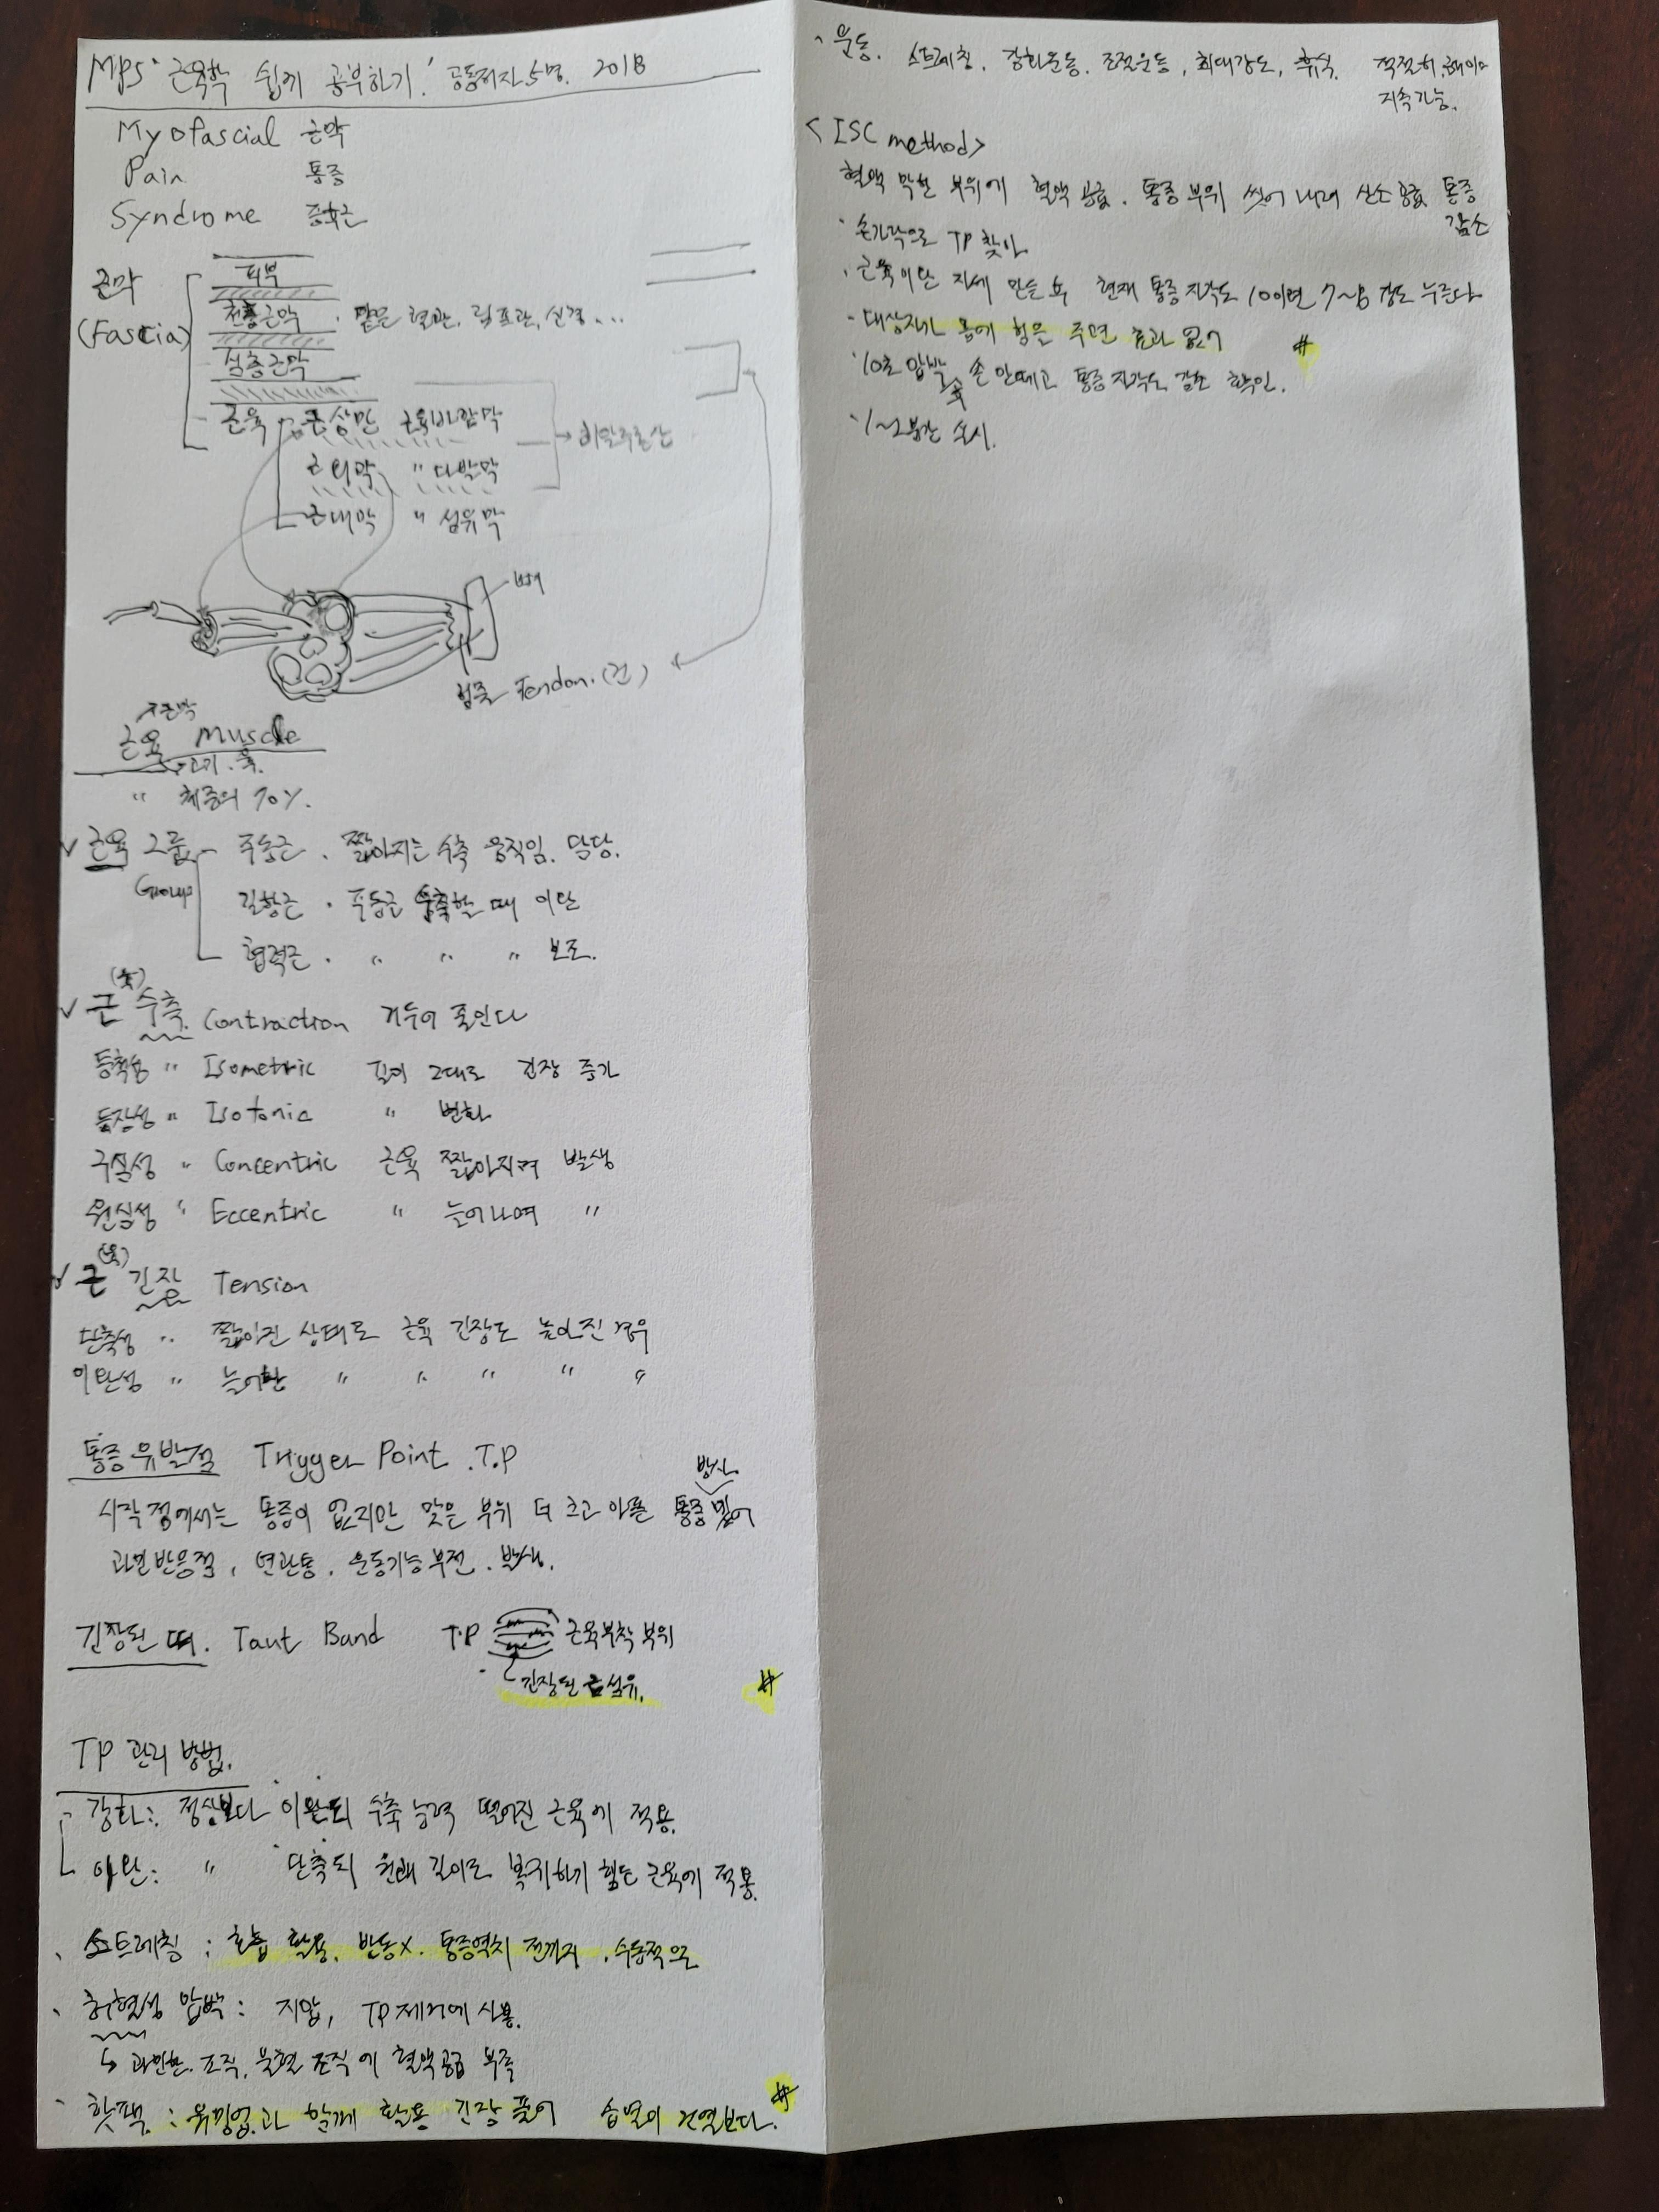 MPS '근육학 쉽게 공부하기' 공동저자 5명. 2018
Myofascial 근막
Pain 통증
Syndrome 증후군
근막
(Fascia)
피부
천층근막 . 혈관, 림프관, 신경...
심층근막
근육 근상막
근외막 " 다발막
근내막 " 섬유막
뼈
힘줄 Tendon. (건)
근막
근육 Muscle
고기. 육.
" 체중의 70%.
√ 근육 그룹 - 주동근 . 짧아지는 수축 움직임. 담당.
Group
길항근 . 주동근 수축할 때 이완
협력근 . " " " 보조.
(육)
√ 근 수축. Contraction 거두어 줄인다
등척성 " Isometric 길이 그대로 긴장 증가
등장성 " Isotonic " 변화
구심성 " Concentric 근육 짧아지며 발생
원심성 " Eccentric " 늘어나며 "
(육)
√ 근 긴장 Tension
단축성 " 짧아진 상태로 근육 긴장도 높아진 경우
이완성 " 늘어난 " " " " "
통증 유발점 Trigger Point .T.P
방사
시작점에서는 통증이 없지만 맞은 부위 더 크고 아픈 통증
과민반응점, 연관통, 운동기능부전. 발생.
긴장된 띠. Taut Band T.P 근육부착 부위
긴장된 근섬유.
#
TP 관리 방법.
강화: 정상보다 이완되 수축 능력 떨어진 근육에 적용.
이완: " 단축되 원래 길이로 복귀하기 힘든 근육에 적용.
、스트레칭 : 호흡 활용. 반동x. 통증역치 전까지. 수동적으로
、허혈성 압박 : 지압, TP 제거에 사용.
↳ 과민한 조직, 불혈 조직에 혈액공급 부족
、핫팩 : 워밍업과 함께 활용 긴장 풀어 습열이 건열보다. #
、운동. 스트레칭. 강화운동. 조절운동, 최대강도, 휴식. 적절히.
지속가능.
<ISC method>
혈액 막힌 부위에 혈액 공급. 통증 부위 씻어 내려 산소 공급 통증
감소
. 손가락으로 TP 찾아
. 근육이완 자세 만든 후 현재 통증 자각도 10이면 7~8 강도 누른다
. 대상자가 몸에 힘을 주면 효과 없어 #
. 10초 압박 후 손 안떼고 통증 자각도 감소 확인.
. 1~2분간 실시.